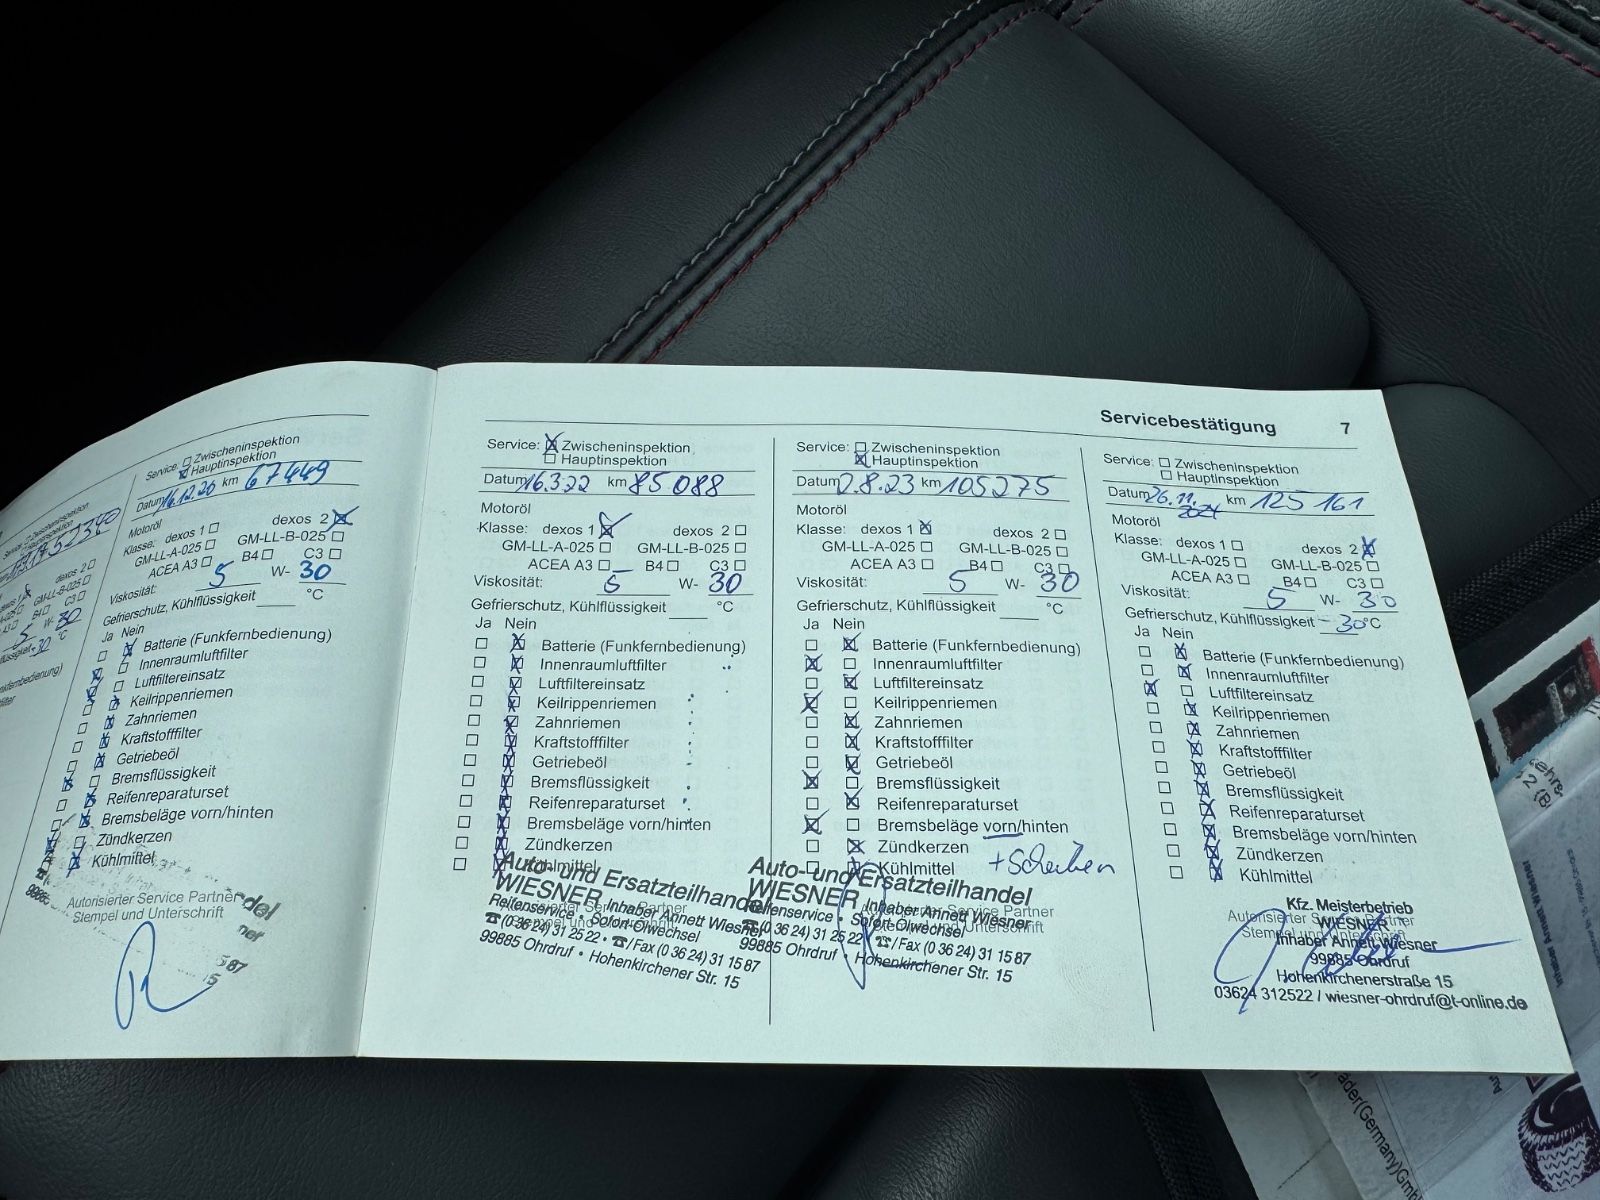 Servicebestätigung 7
Service: ☐ Zwischeninspektion
☒ Hauptinspektion
Datum 16.12.20 km 67449
Motoröl
Klasse: dexos 1 ☐ dexos 2 ☒
GM-LL-A-025 ☐ GM-LL-B-025 ☐
ACEA A3 ☐ B4 ☐ C3 ☐
Viskosität: 5 W- 30
Gefrierschutz, Kühlflüssigkeit ____ °C
Ja Nein
☐ ☒ Batterie (Funkfernbedienung)
☒ ☐ Innenraumluftfilter
☒ ☐ Luftfiltereinsatz
☐ ☒ Keilrippenriemen
☐ ☒ Zahnriemen
☐ ☒ Kraftstofffilter
☐ ☒ Getriebeöl
☒ ☐ Bremsflüssigkeit
☐ ☒ Reifenreparaturset
☐ ☒ Bremsbeläge vorn/hinten
☒ ☐ Zündkerzen
☐ ☒ Kühlmittel
Autorisierter Service Partner
Stempel und Unterschrift
Service: ☒ Zwischeninspektion
☐ Hauptinspektion
Datum 16.3.22 km 85 088
Motoröl
Klasse: dexos 1 ☒ dexos 2 ☐
GM-LL-A-025 ☐ GM-LL-B-025 ☐
ACEA A3 ☐ B4 ☐ C3 ☐
Viskosität: 5 W- 30
Gefrierschutz, Kühlflüssigkeit ____ °C
Ja Nein
☐ ☒ Batterie (Funkfernbedienung)
☐ ☒ Innenraumluftfilter
☐ ☒ Luftfiltereinsatz
☐ ☒ Keilrippenriemen
☐ ☒ Zahnriemen
☐ ☒ Kraftstofffilter
☐ ☒ Getriebeöl
☐ ☒ Bremsflüssigkeit
☐ ☒ Reifenreparaturset
☐ ☒ Bremsbeläge vorn/hinten
☐ ☒ Zündkerzen
☐ ☒ Kühlmittel
Auto- und Ersatzteilhandel
WIESNER Inhaber Annett Wiesner
Reifenservice • Sofort-Ölwechsel
☎ (0 36 24) 31 25 22 • ☎/Fax (0 36 24) 31 15 87
99885 Ohrdruf • Hohenkirchener Str. 15
Service: ☐ Zwischeninspektion
☒ Hauptinspektion
Datum 2.8.23 km 105275
Motoröl
Klasse: dexos 1 ☒ dexos 2 ☐
GM-LL-A-025 ☐ GM-LL-B-025 ☐
ACEA A3 ☐ B4 ☐ C3 ☐
Viskosität: 5 W- 30
Gefrierschutz, Kühlflüssigkeit ____ °C
Ja Nein
☐ ☒ Batterie (Funkfernbedienung)
☒ ☐ Innenraumluftfilter
☐ ☒ Luftfiltereinsatz
☒ ☐ Keilrippenriemen
☐ ☒ Zahnriemen
☐ ☒ Kraftstofffilter
☐ ☒ Getriebeöl
☒ ☐ Bremsflüssigkeit
☐ ☒ Reifenreparaturset
☒ ☐ Bremsbeläge vorn/hinten
☐ ☒ Zündkerzen
☐ ☒ Kühlmittel + Scheiben
Auto- und Ersatzteilhandel
WIESNER Inhaber Annett Wiesner
Reifenservice • Sofort-Ölwechsel
☎ (0 36 24) 31 25 22 • ☎/Fax (0 36 24) 31 15 87
99885 Ohrdruf • Hohenkirchener Str. 15
Service: ☐ Zwischeninspektion
☐ Hauptinspektion
Datum 26.11. 2024 km 125 161
Motoröl
Klasse: dexos 1 ☐ dexos 2 ☒
GM-LL-A-025 ☐ GM-LL-B-025 ☐
ACEA A3 ☐ B4 ☐ C3 ☐
Viskosität: 5 W- 30
Gefrierschutz, Kühlflüssigkeit - 30 °C
Ja Nein
☐ ☒ Batterie (Funkfernbedienung)
☐ ☒ Innenraumluftfilter
☒ ☐ Luftfiltereinsatz
☐ ☒ Keilrippenriemen
☐ ☒ Zahnriemen
☐ ☒ Kraftstofffilter
☐ ☒ Getriebeöl
☐ ☒ Bremsflüssigkeit
☐ ☒ Reifenreparaturset
☐ ☒ Bremsbeläge vorn/hinten
☐ ☒ Zündkerzen
☐ ☒ Kühlmittel
Autorisierter Service Partner
Kfz. Meisterbetrieb
WIESNER
Inhaber Annett Wiesner
99885 Ohrdruf
Hohenkirchenerstraße 15
03624 312522 / wiesner-ohrdruf@t-online.de